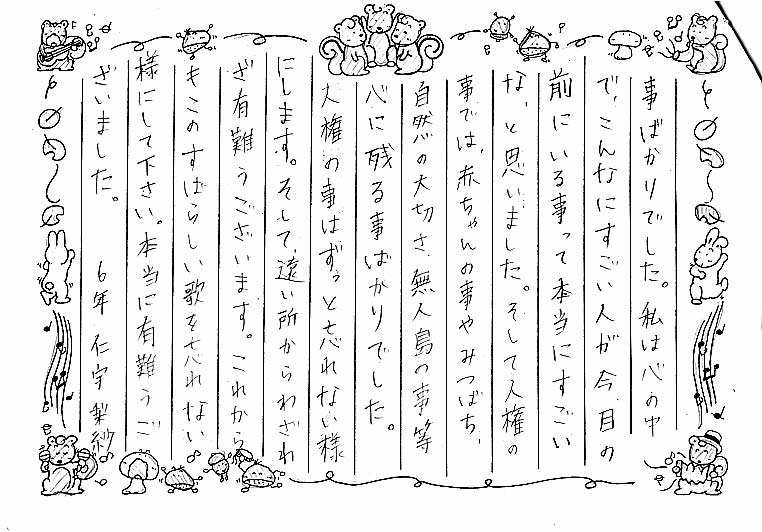 事ばかりでした。私は心の中
で、こんなにすごい人が今、目の
前にいる事って本当にすごい
な、と思いました。そして人権の
事では、赤ちゃんの事やみつばち、
自然の大切さ、無人島の事等
心に残る事ばかりでした。
人権の事はずぅっと忘れない様
にします。そして、遠い所からわざわ
ざ有難うございます。これから
もこのすばらしい歌を忘れない
様にして下さい。本当に有難うご
ざいました。
6年 仁宇 梨紗